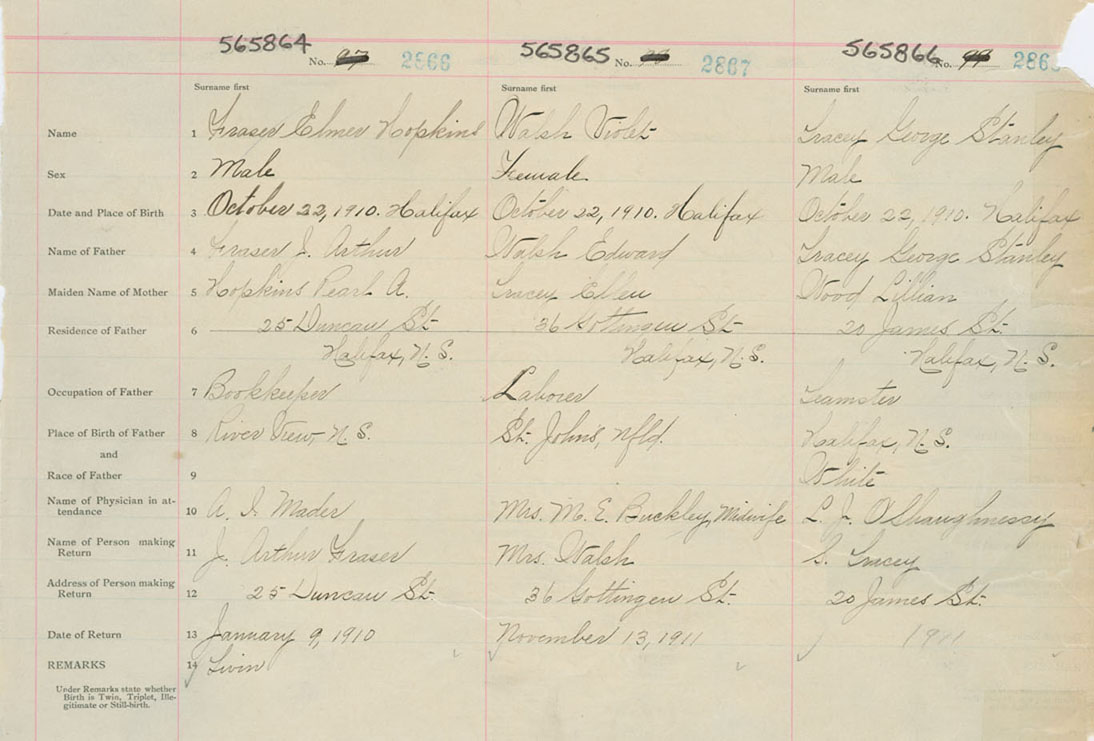 565864 565865 565866
No. 97 2866 No. 2867 No. 99 286
Surname first Surname first Surname first
Name 1 Fraser Elmer Hopkins Walsh Violet Tracey George Stanley
Sex 2 Male Female Male
Date and Place of Birth 3 October 22, 1910. Halifax October 22, 1910. Halifax October 22, 1910. Halifax
Name of Father 4 Fraser J. Arthur Walsh Edward Tracey George Stanley
Maiden Name of Mother 5 Hopkins Pearl A. Tracey Ellen Wood Lillian
Residence of Father 6 25 Duncan St. 36 Gottingen St. 20 James St.
Halifax, N.S. Halifax, N.S. Halifax, N.S.
Occupation of Father 7 Bookkeeper Laborer Teamster
Place of Birth of Father 8 River View, N.S. St. Johns, Nfld. Halifax, N.S.
and
Race of Father 9 White
Name of Physician in at-
tendance 10 A. I. Mader Mrs. M. E. Buckley, Midwife L. J. O'Shaughnessy
Name of Person making
Return 11 J. Arthur Fraser Mrs. Walsh S. Tracey
Address of Person making
Return 12 25 Duncan St. 36 Gottingen St. 20 James St.
Date of Return 13 January 9, 1910 November 13, 1911 1911
REMARKS 14 Twin
Under Remarks state whether
Birth is Twin, Triplet, Ille-
gitimate or Still-birth.